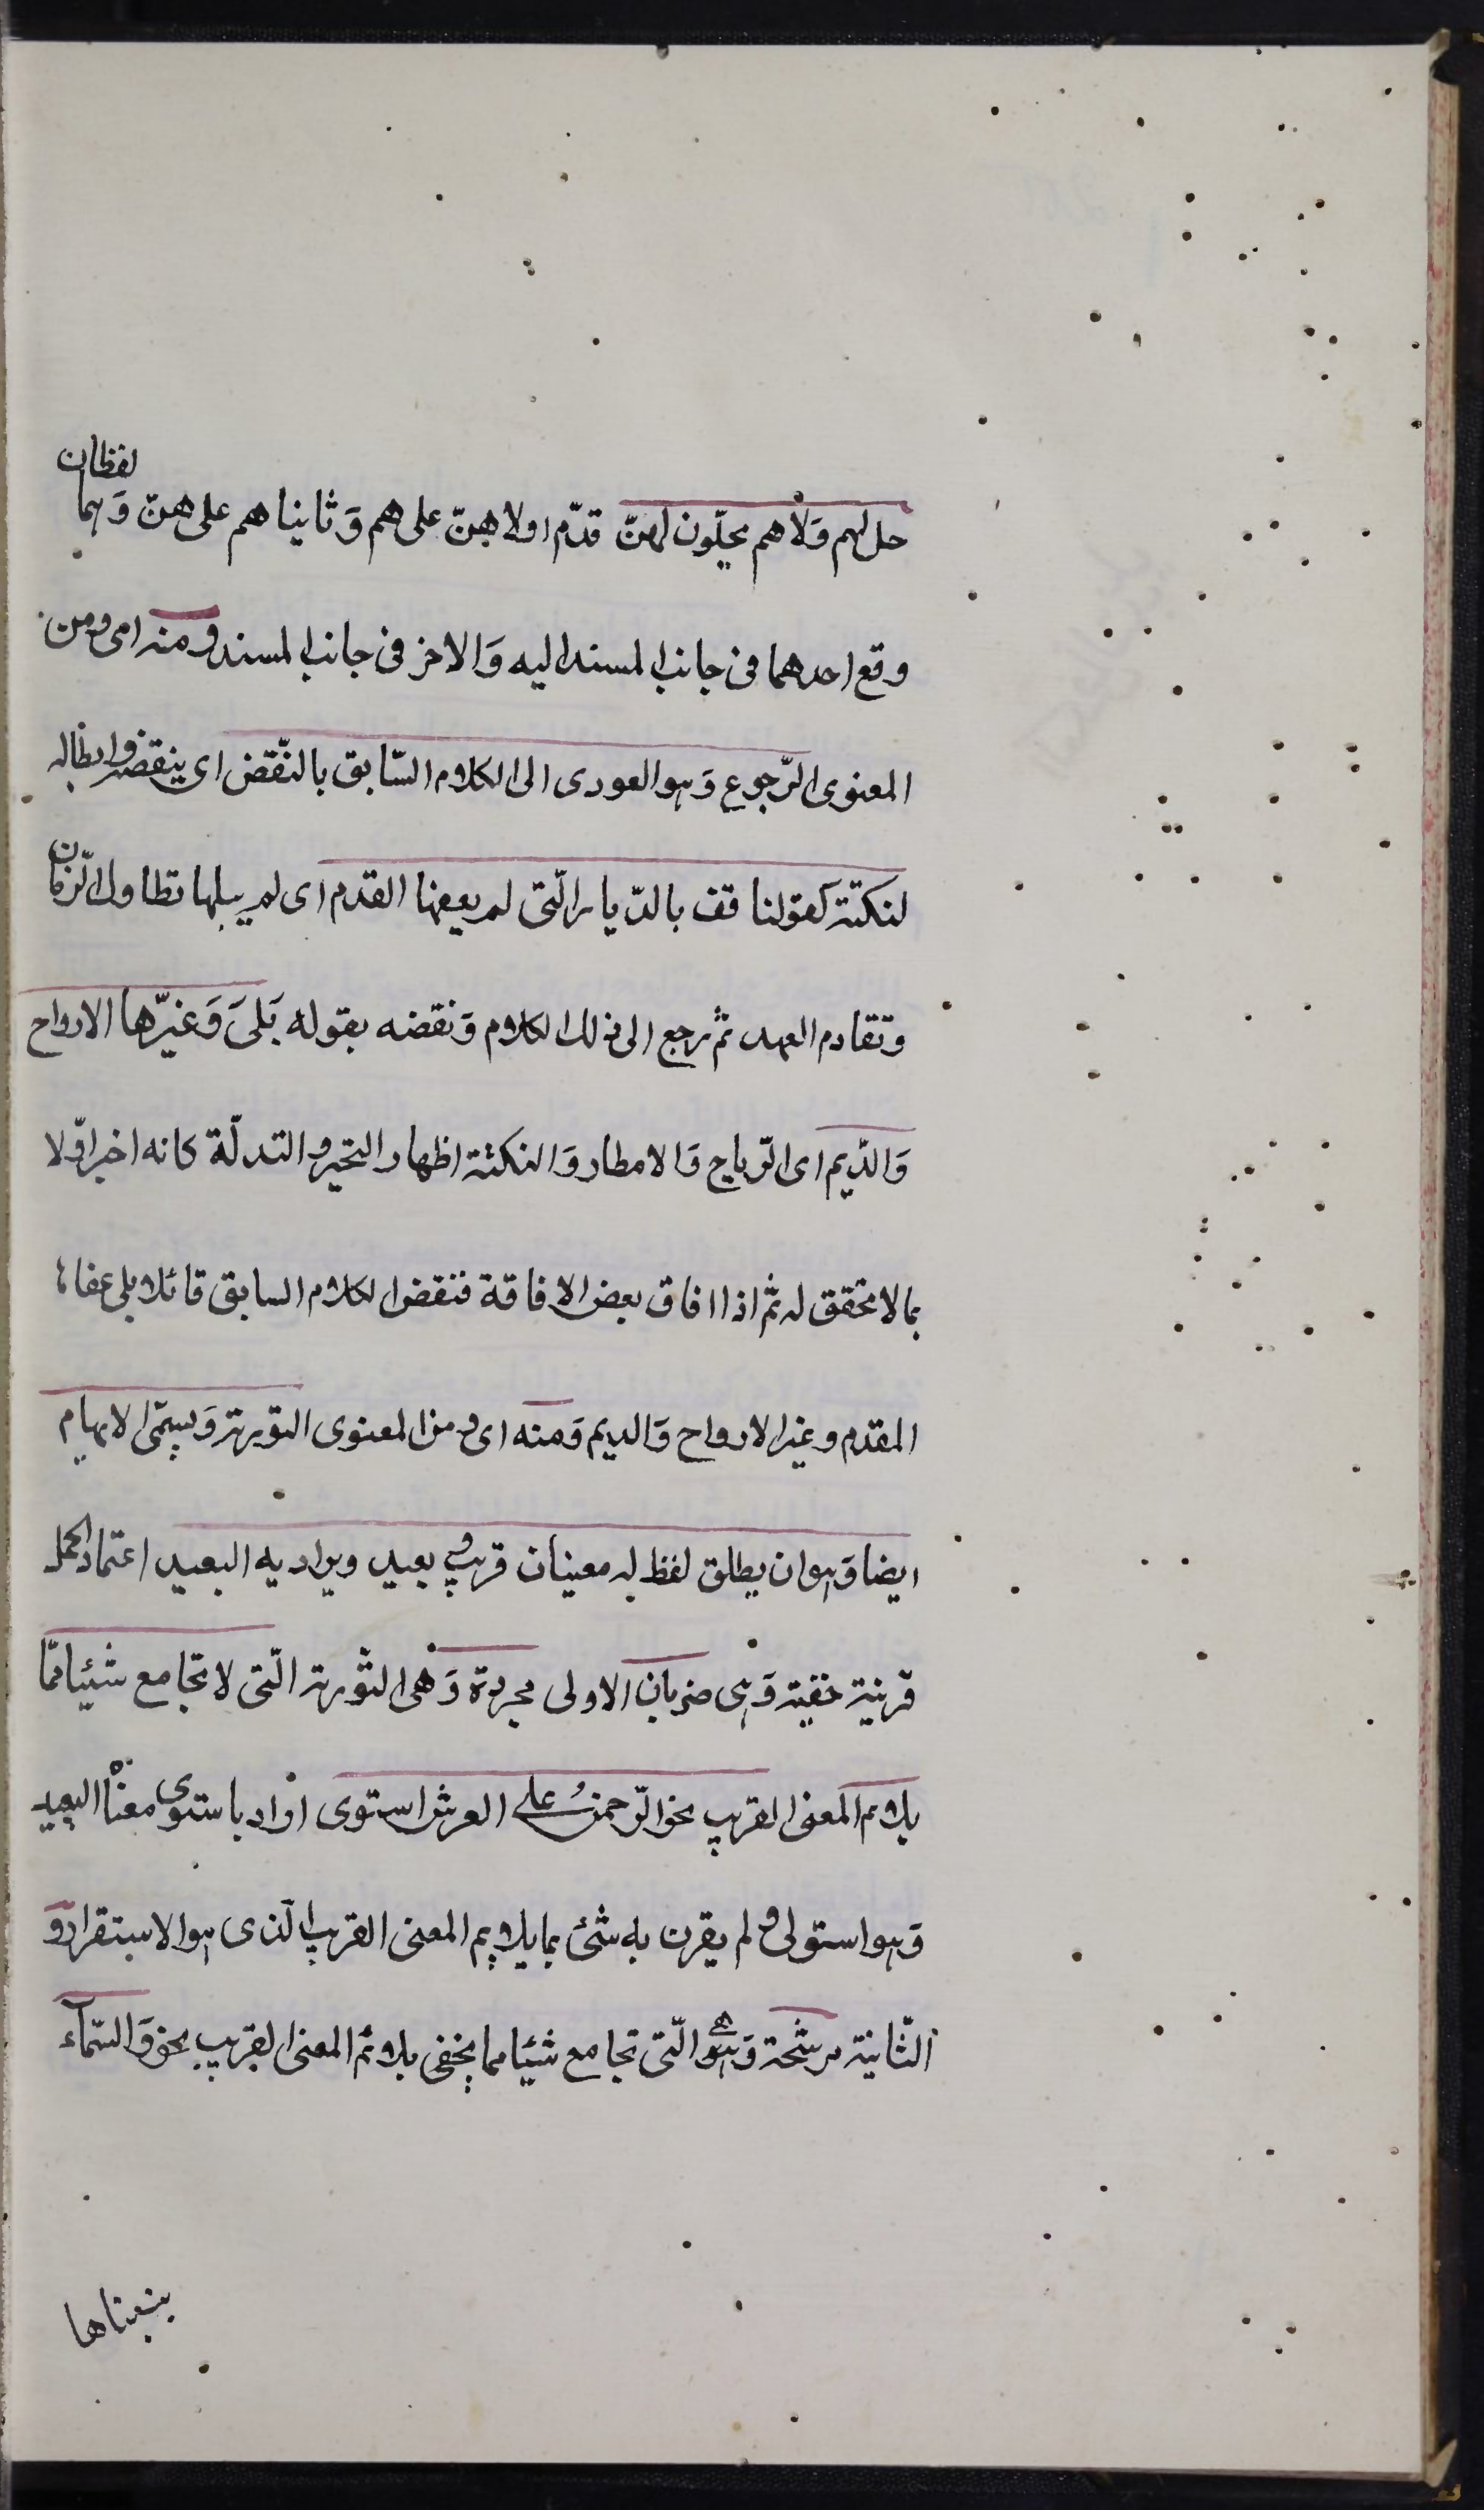 حل لهم وَلا هم يحلّون لهنّ قدّم اولا هنّ على هم وَثانيا هم على هنّ وَهما لفظان
وقع احدهما فى جانب المسند اليه وَالاخر فى جانب المسند ومنه اى ومن
المعنوى الرّجوع وَهو العود الى الكلام السّابق بالنّقض اى ينقضه وابطاله
لنكتة كقولنا قف بالدّيار الّتى لم يعفها القدم اى لم يبلها تطاول الزّمان
وتقادم العهد ثمّ رجع الى ذلك الكلام وَنقضه بقوله بَلىَ وَغيّرها الارواح
وَالدّيم اى الرّياح وَالامطار وَالنكتة اظهار التحير والتدلّة كانه اخبر اوّلا
بما لا تحقق له ثمّ اذا افاق بعض الافاقة فنقض الكلام السابق قائلا بلى عفاها
المقدم وغير الارواح وَالديم وَمنه اى ومن المعنوى التورية وَيسمّى الايهام
ايضا وَهو ان يطلق لفظ له معنيان قريب وبعيد ويراد به البعيد اعتمادا على
قرينة خفية وَهى ضربان الاولى مجردة وَهى التّورية الّتى لا تجامع شيئا ممّا
يلائم المعنى القريب نحو الرّحمن على العرش استوى اراد باستوى معناه البعيد
وَهو استولى ولم يقرن به شئ مما يلايم المعنى القريب الّذى هو الاستقرار و
الثّانية مرشّحة وَهى الّتى تجامع شيئا مما يلائم المعنى القريب نحو وَالسّماء
بنيناها